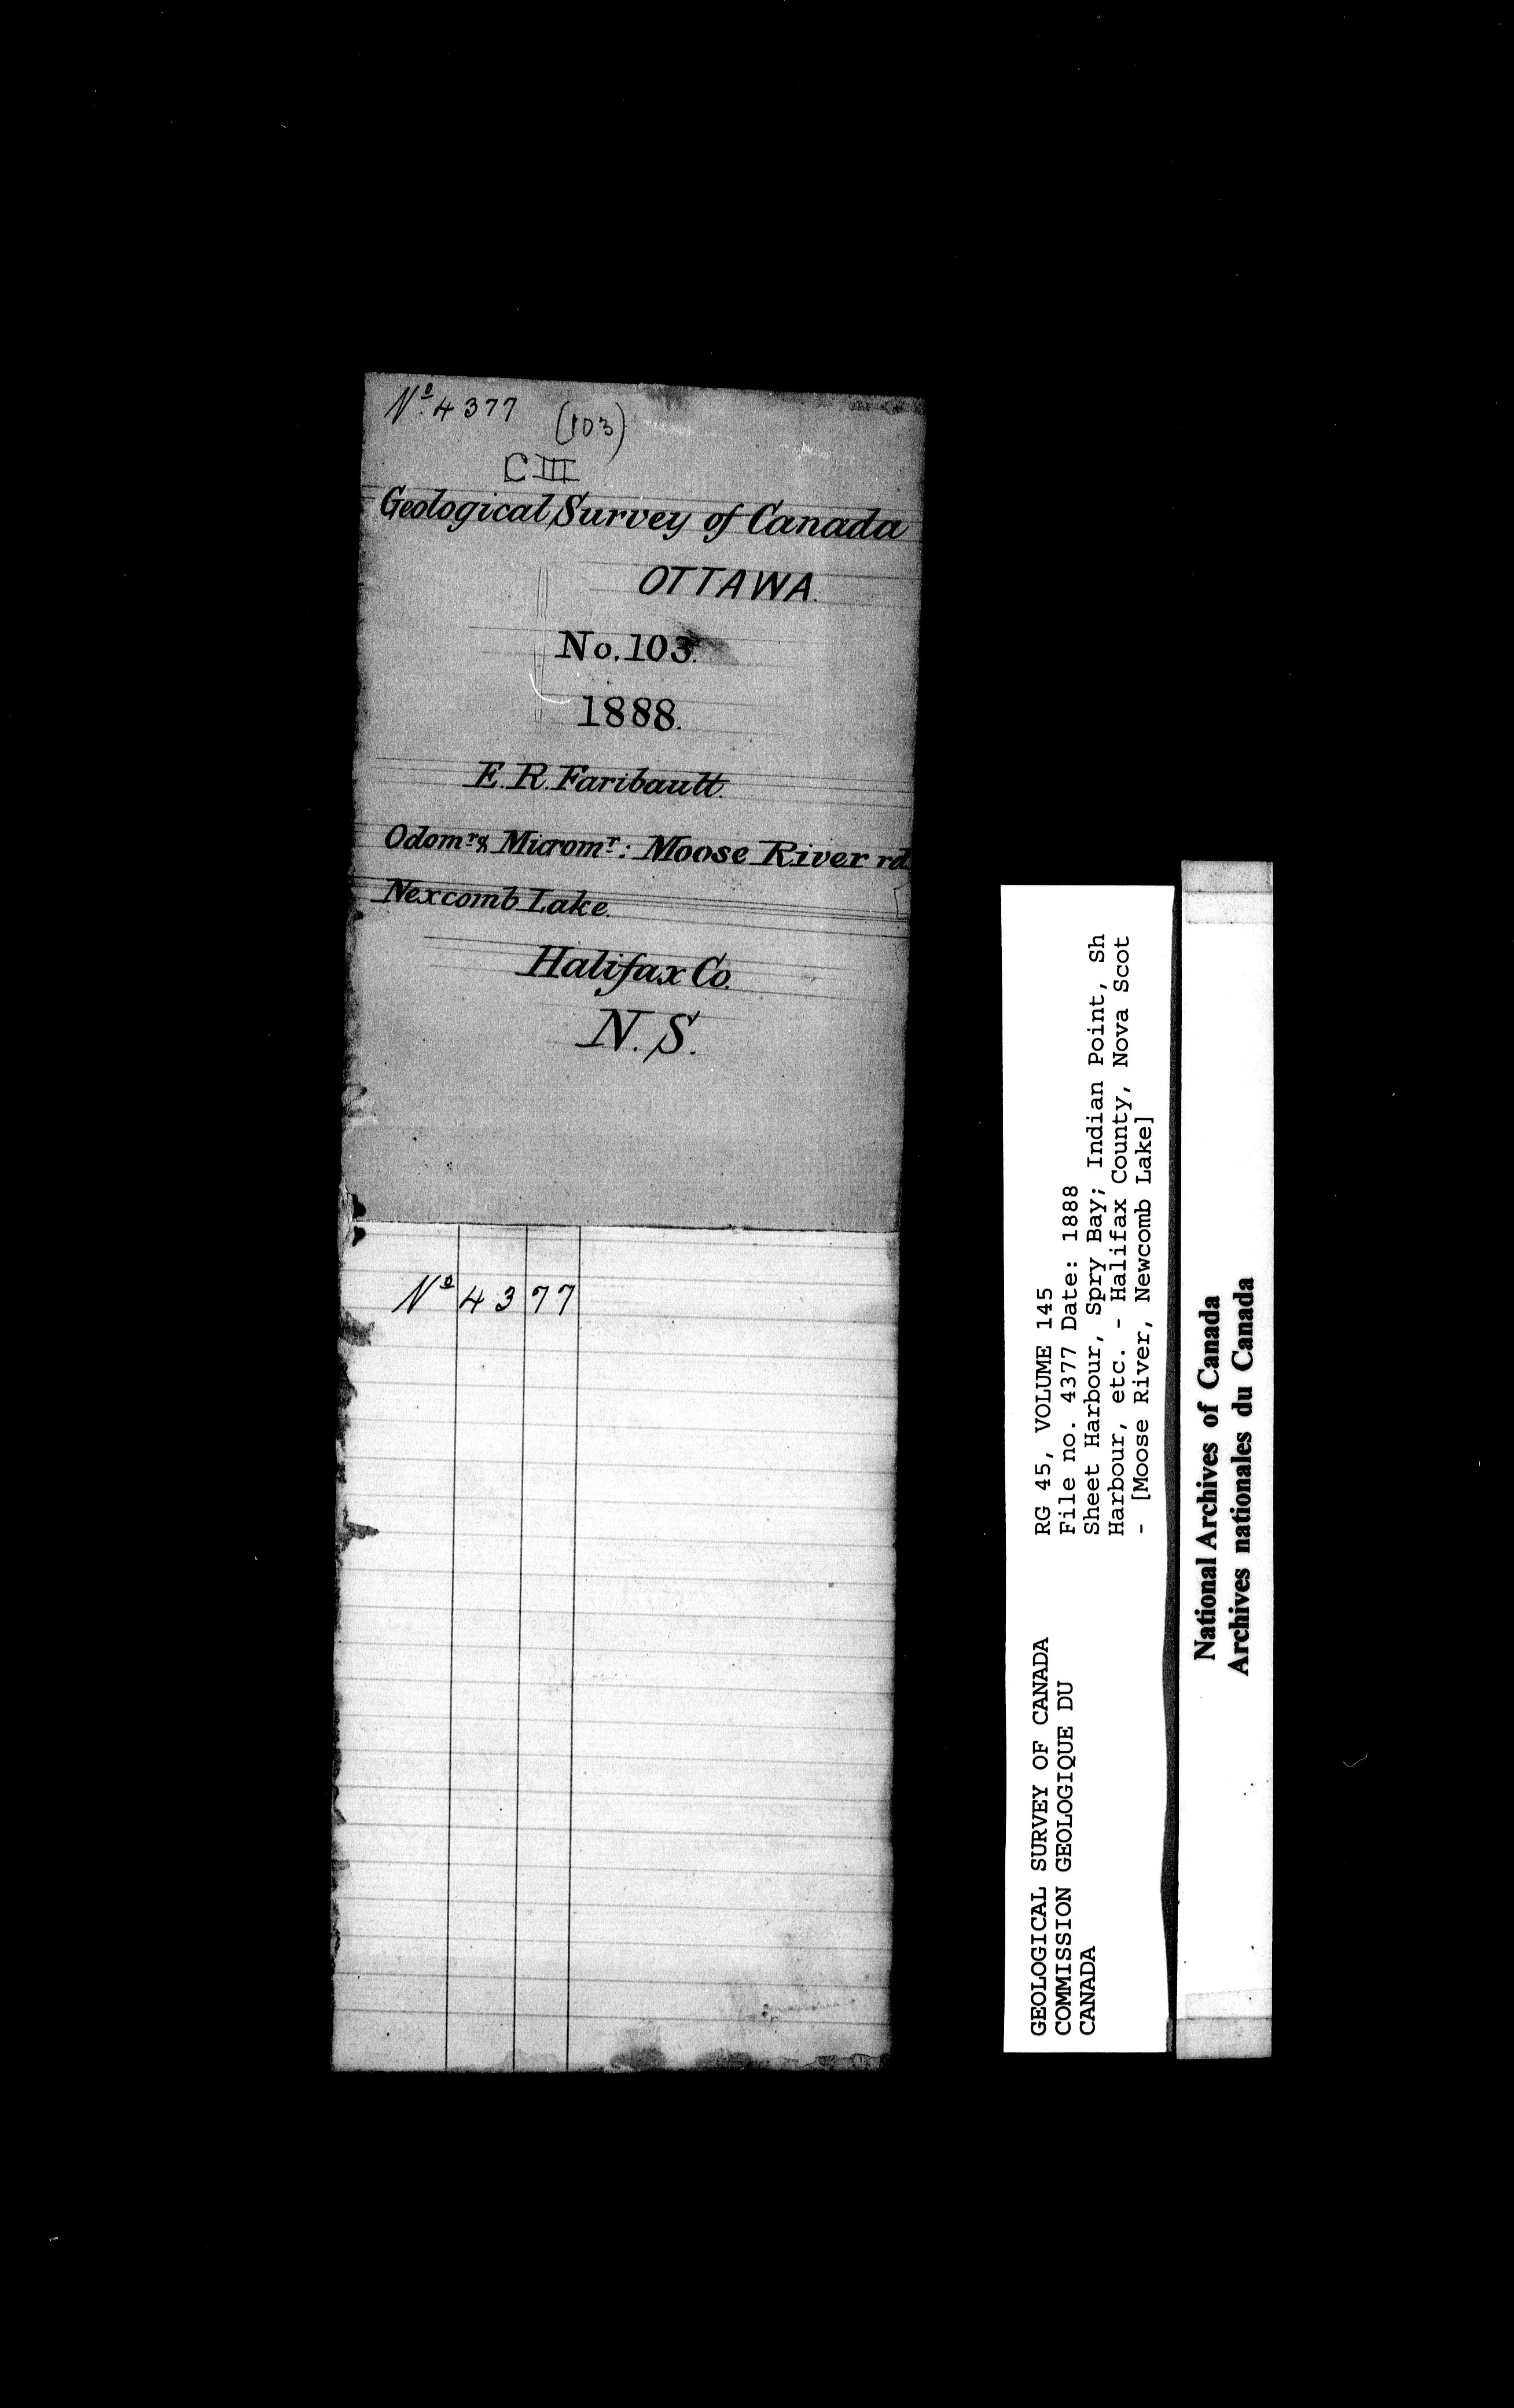 Nº 4377 (103)
CIII
Geological Survey of Canada
OTTAWA.
No. 103.
1888.
E. R. Faribault.
Odomr & Micromr: Moose River rd.
Nexcomb Lake.
Halifax Co.
N. S.
Nº 4377
GEOLOGICAL SURVEY OF CANADA
COMMISSION GEOLOGIQUE DU
CANADA
RG 45, VOLUME 145
File no. 4377 Date: 1888
Sheet Harbour, Spry Bay; Indian Point, Sh
Harbour, etc. - Halifax County, Nova Scot
- [Moose River, Newcomb Lake]
National Archives of Canada
Archives nationales du Canada